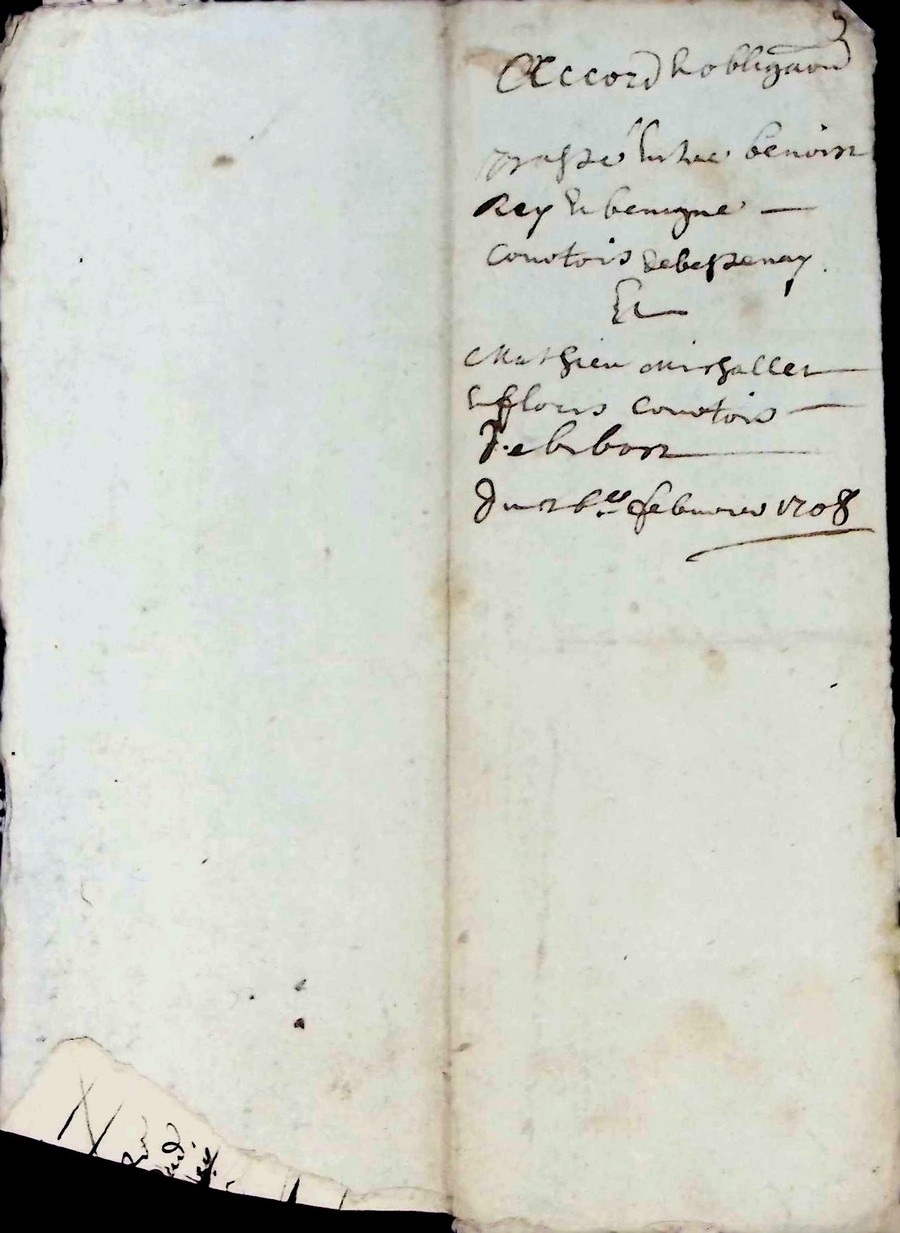 Accord & obligaon
passé entre benoist
Rey et benigne
Courtois de bessenay
Et
Mathieu Michallet
et flouris Courtois
de bibost
Du 26.es febvrier 1708